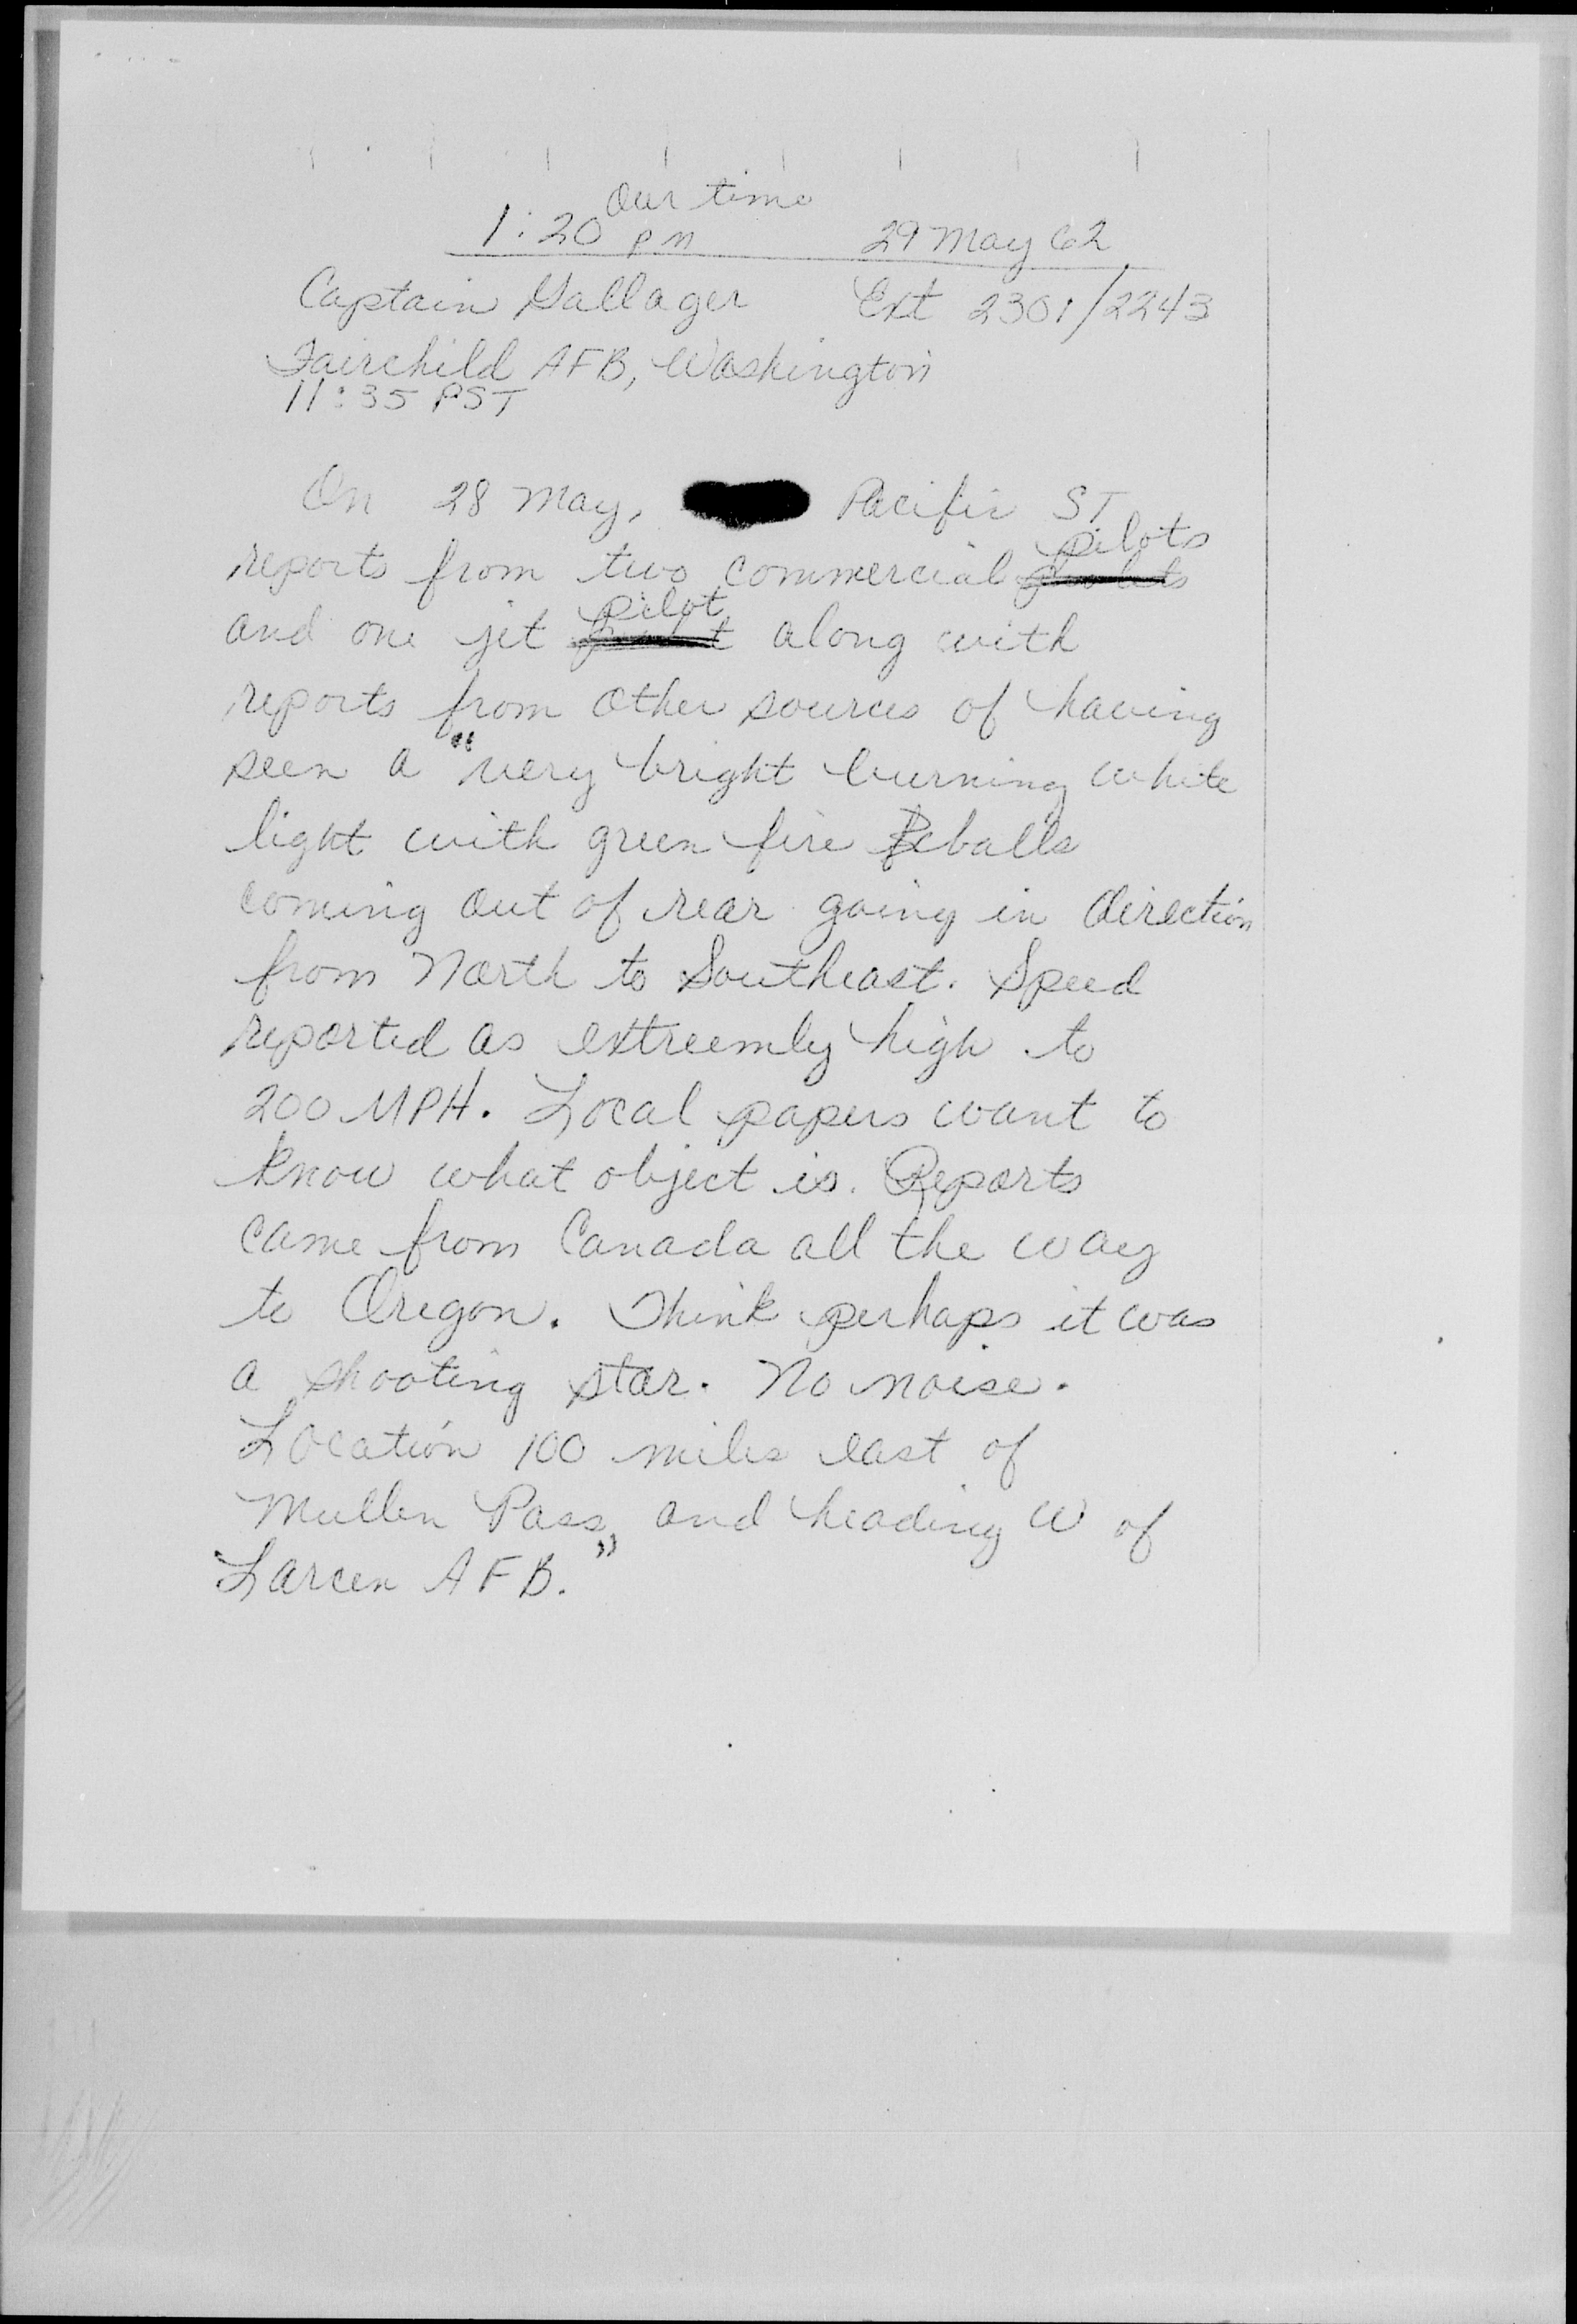 Our time
1:20 PM 29 May 62
Captain Gallager Ext 2301/2243
Fairchild AFB, Washington
11:35 PST
On 28 May, Pacific ST
reports from two commercial pilots
and one jet pilot along with
reports from other sources of having
seen a "very bright burning white
light with green fire balls
coming out of rear going in direction
from North to Southeast. Speed
reported as extreemly high to
200 MPH. Local papers want to
know what object is. Reports
came from Canada all the way
to Oregon. Think perhaps it was
a shooting star. No noise.
Location 100 miles east of
Mullen Pass, and heading W of
Larcen AFB."